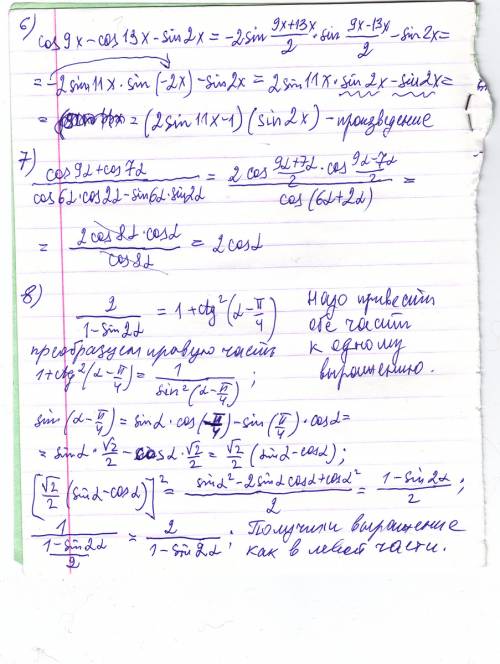 6) cos 9x − cos 13x − sin 2x = −2 sin (9x+13x)/2 · sin (9x−13x)/2 − sin 2x =
= −2 sin 11x · sin (−2x) − sin 2x = 2 sin 11x · sin 2x − sin 2x =
= = (2 sin 11x − 1) (sin 2x) − произведение
7) (cos 9α + cos 7α)/(cos 6α · cos 2α − sin 6α · sin 2α) = (2 cos (9α+7α)/2 · cos (9α−7α)/2)/(cos (6α+2α)) =
= (2 cos 8α · cos α)/(cos 8α) = 2 cos α
8) 2/(1 − sin 2α) = 1 + ctg²(α − π/4)
Надо привести
обе части
к одному
выражению.
преобразуем правую часть
1 + ctg²(α − π/4) = 1/(sin²(α − π/4));
sin (α − π/4) = sin α · cos (π/4) − sin (π/4) · cos α =
= sin α · √2/2 − cos α · √2/2 = √2/2 (sin α − cos α);
[√2/2 (sin α − cos α)]² = (sin α² − 2 sin α cos α + cos α²)/2 = (1 − sin 2α)/2;
1/((1 − sin 2α)/2) = 2/(1 − sin 2α); Получили выражение
как в левой части.